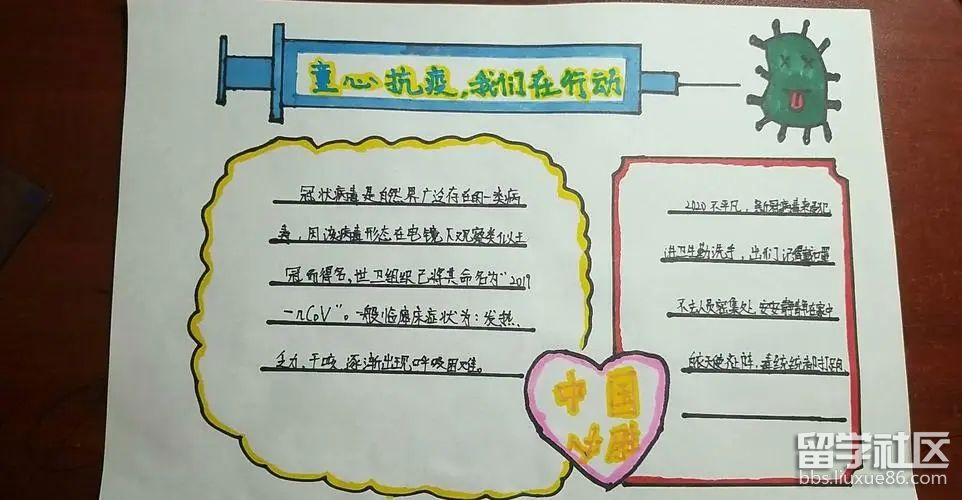 童心抗疫,我们在行动
冠状病毒是自然界广泛存在的一类病
毒,因该病毒形态在电镜下观察类似王
冠而得名,世卫组织已将其命名为"2019
-nCoV"。一般临床症状为:发热、
乏力、干咳、逐渐出现呼吸困难。
2020不平凡,新冠病毒来侵犯
讲卫生勤洗手,出门记得戴口罩
不去人员密集处,安安静静在家中
白衣天使去上阵,毒统统都打跑
中国
加油
留学社区
bbs.liuxue86.com